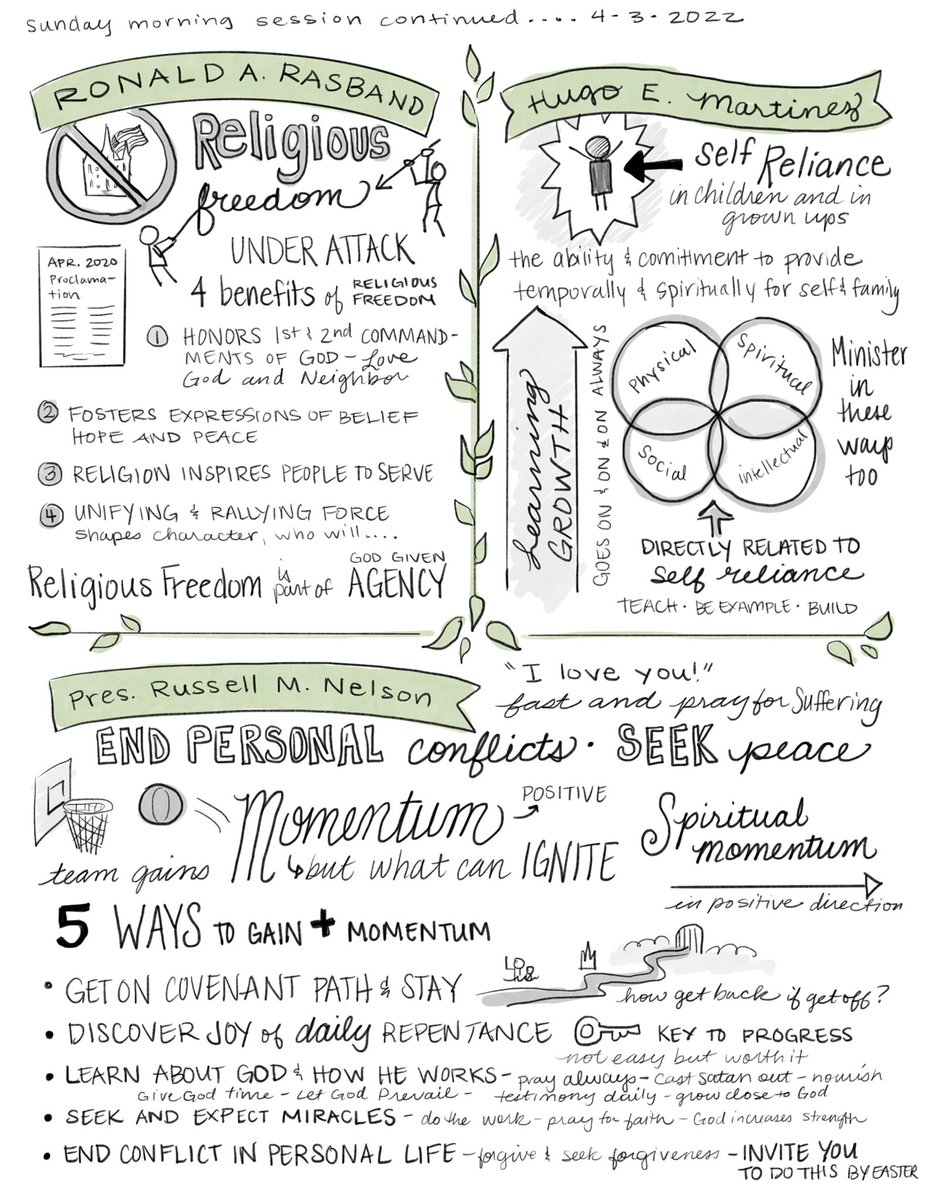 Sunday morning session continued.... 4-3-2022
RONALD A. RASBAND
Religious
freedom
UNDER ATTACK
APR. 2020
Proclama-
tion
4 benefits of RELIGIOUS
FREEDOM
1 HONORS 1st & 2nd COMMAND-
MENTS OF GOD - Love
God and Neighbor
2 FOSTERS EXPRESSIONS OF BELIEF
HOPE AND PEACE
3 RELIGION INSPIRES PEOPLE TO SERVE
4 UNIFYING & RALLYING FORCE
shapes character, who will....
Religious Freedom is part of GOD GIVEN
AGENCY
Hugo E. Martinez
Self Reliance
in children and in
grown ups
the ability & comitment to provide
temporally & spiritually for self & family
Learning
GROWTH
GOES ON & ON & ON ALWAYS
Physical
Spiritual
Social
intellectual
Minister
in
these
ways
too
DIRECTLY RELATED TO
self reliance
TEACH · BE EXAMPLE · BUILD
Pres. Russell M. Nelson
"I love you!"
fast and pray for suffering
END PERSONAL conflicts · SEEK peace
team gains Momentum
POSITIVE
but what can IGNITE
Spiritual
momentum
in positive direction
5 WAYS TO GAIN + MOMENTUM
• GET ON COVENANT PATH & STAY
how get back if get off?
• DISCOVER JOY of daily REPENTANCE KEY TO PROGRESS
not easy but worth it
• LEARN ABOUT GOD & HOW HE WORKS - pray always - cast Satan out - nourish
Give God time - Let God Prevail - testimony daily - grow close to God
• SEEK AND EXPECT MIRACLES - do the work - pray for faith - God increases strength
• END CONFLICT IN PERSONAL LIFE - forgive & seek forgiveness - INVITE YOU
TO DO THIS BY EASTER